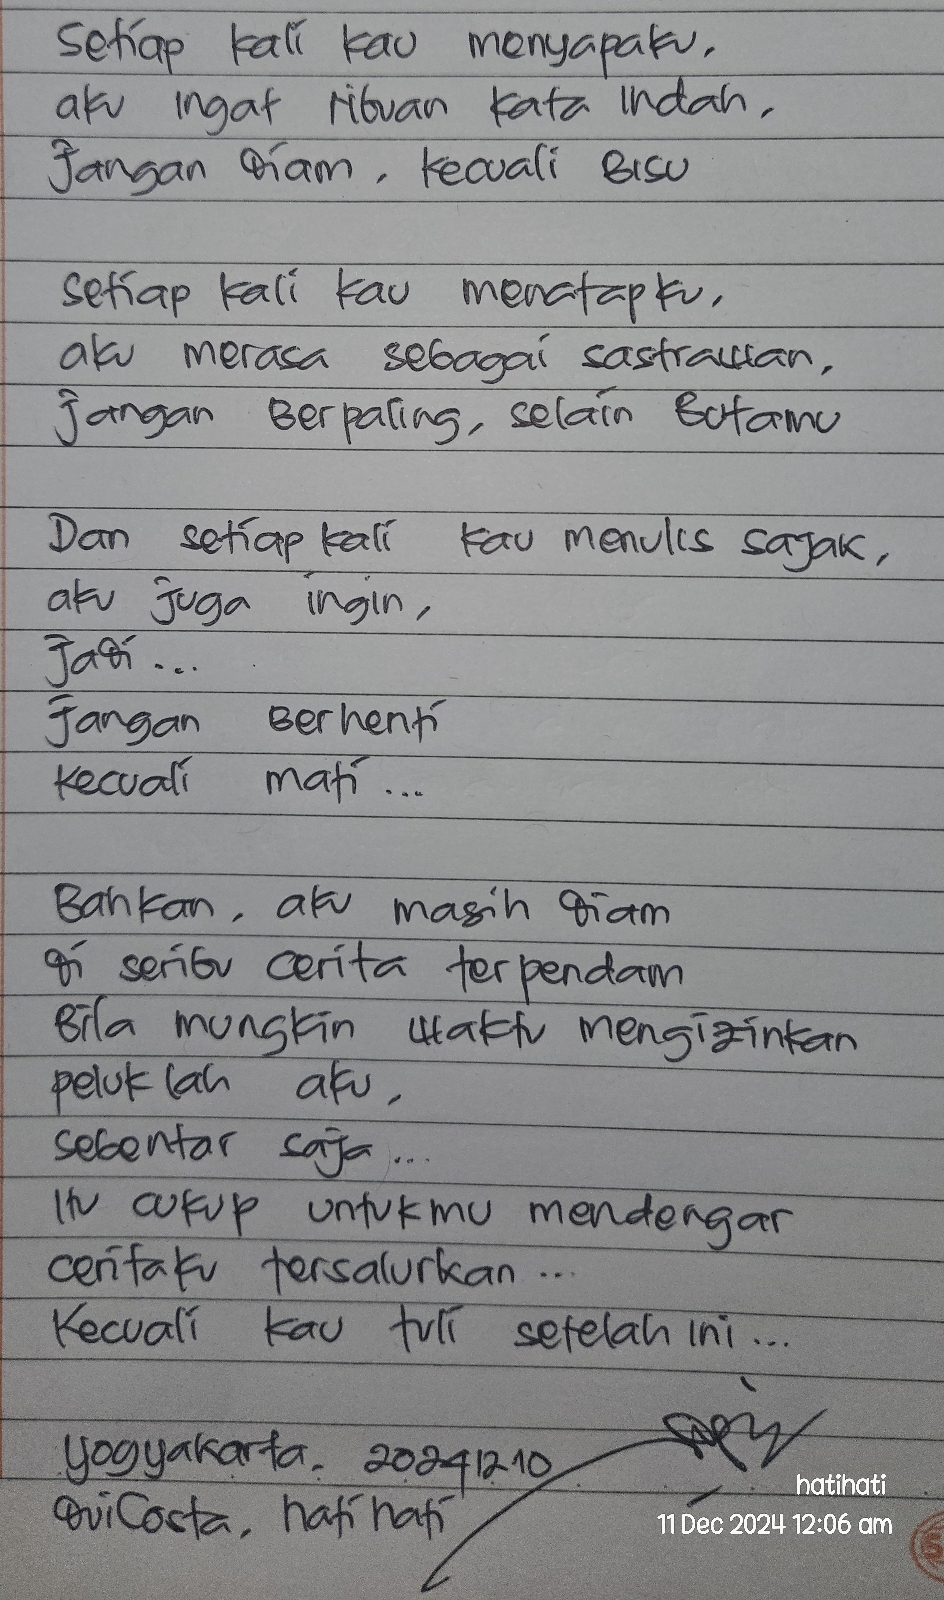 Setiap kali kau menyapaku,
aku ingat ribuan kata indah,
Jangan diam, kecuali Bisu
Setiap kali kau menatapku,
aku merasa sebagai sastrawan,
Jangan Berpaling, selain Butamu
Dan setiap kali kau menulis sajak,
aku juga ingin,
Jadi...
Jangan Berhenti
Kecuali mati...
Bahkan, aku masih diam
di seribu cerita terpendam
Bila mungkin waktu mengizinkan
peluklah aku,
sebentar saja...
Itu cukup untukmu mendengar
ceritaku tersalurkan...
Kecuali kau tuli setelah ini...
Yogyakarta. 20241210
dviCosta, hati hati
hatihati
11 Dec 2024 12:06 am